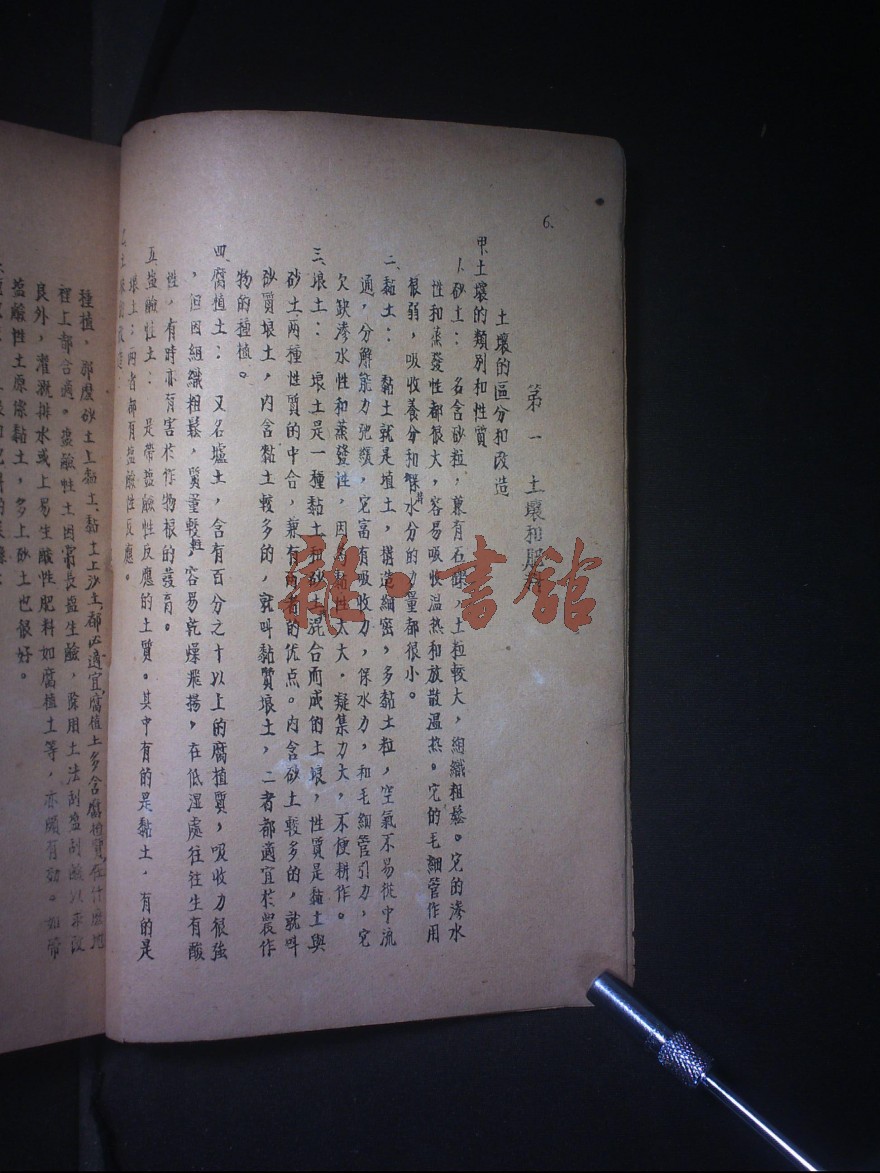 6.
第一 土壤和肥料
土壤的區分和改造
甲、土壤的類別和性質
1.砂土： 名含砂粒，兼有石礫，土粒較大，組織粗鬆。它的滲水
性和蒸發性都很大，容易吸收溫热和放散温热。它的毛細管作用
很弱，吸收養分和保持水分的力量都很小。
二、黏土： 黏土就是埴土，構造細密，多黏土粒，空氣不易從中流
通，分解能力弛緩，它富有吸收力，保水力，和毛細管引力，它
欠缺滲水性和蒸發性，因為黏性太大，凝集力大，不便耕作。
三、埌土： 埌土是一種黏土和砂土混合而成的土埌，性質是黏土與
砂土兩種性質的中合，兼有兩者的优点。内含砂土較多的，就叫
砂質埌土，内含黏土較多的，就叫黏質埌土，二者都適宜於農作
物的種植。
四、腐植土： 又名墟土，含有百分之十以上的腐植質，吸收力很強
，但因組織粗鬆，質量較輕，容易乾燥飛揚，在低湿處往往生有酸
性，有時亦有害於作物根的發育。
五、盐鹼性土： 是帶盐鹼性反應的土質。其中有的是黏土，有的是
埌土；兩者都有盐鹼性反應。
種植，那麽砂土上黏土、黏土上沙土，都必適宜，腐植土多含腐植質，在什麽地
裡上都合適。盐鹼性土因常長盐生鹼，除用土法刮盐刮鹼以求改
良外，灌溉排水或上易生酸性肥料如腐植土等，亦頗有効。如帶
盐鹼性土原係黏土，多上砂土也很好。
雜·書館